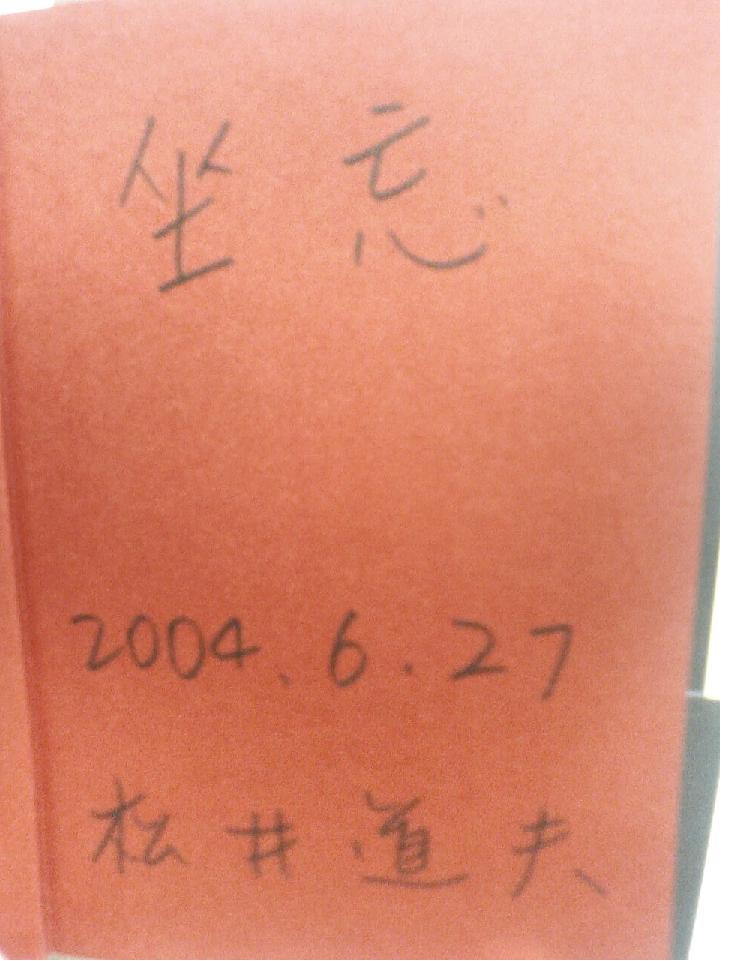 坐忘
2004.6.27
松井道夫